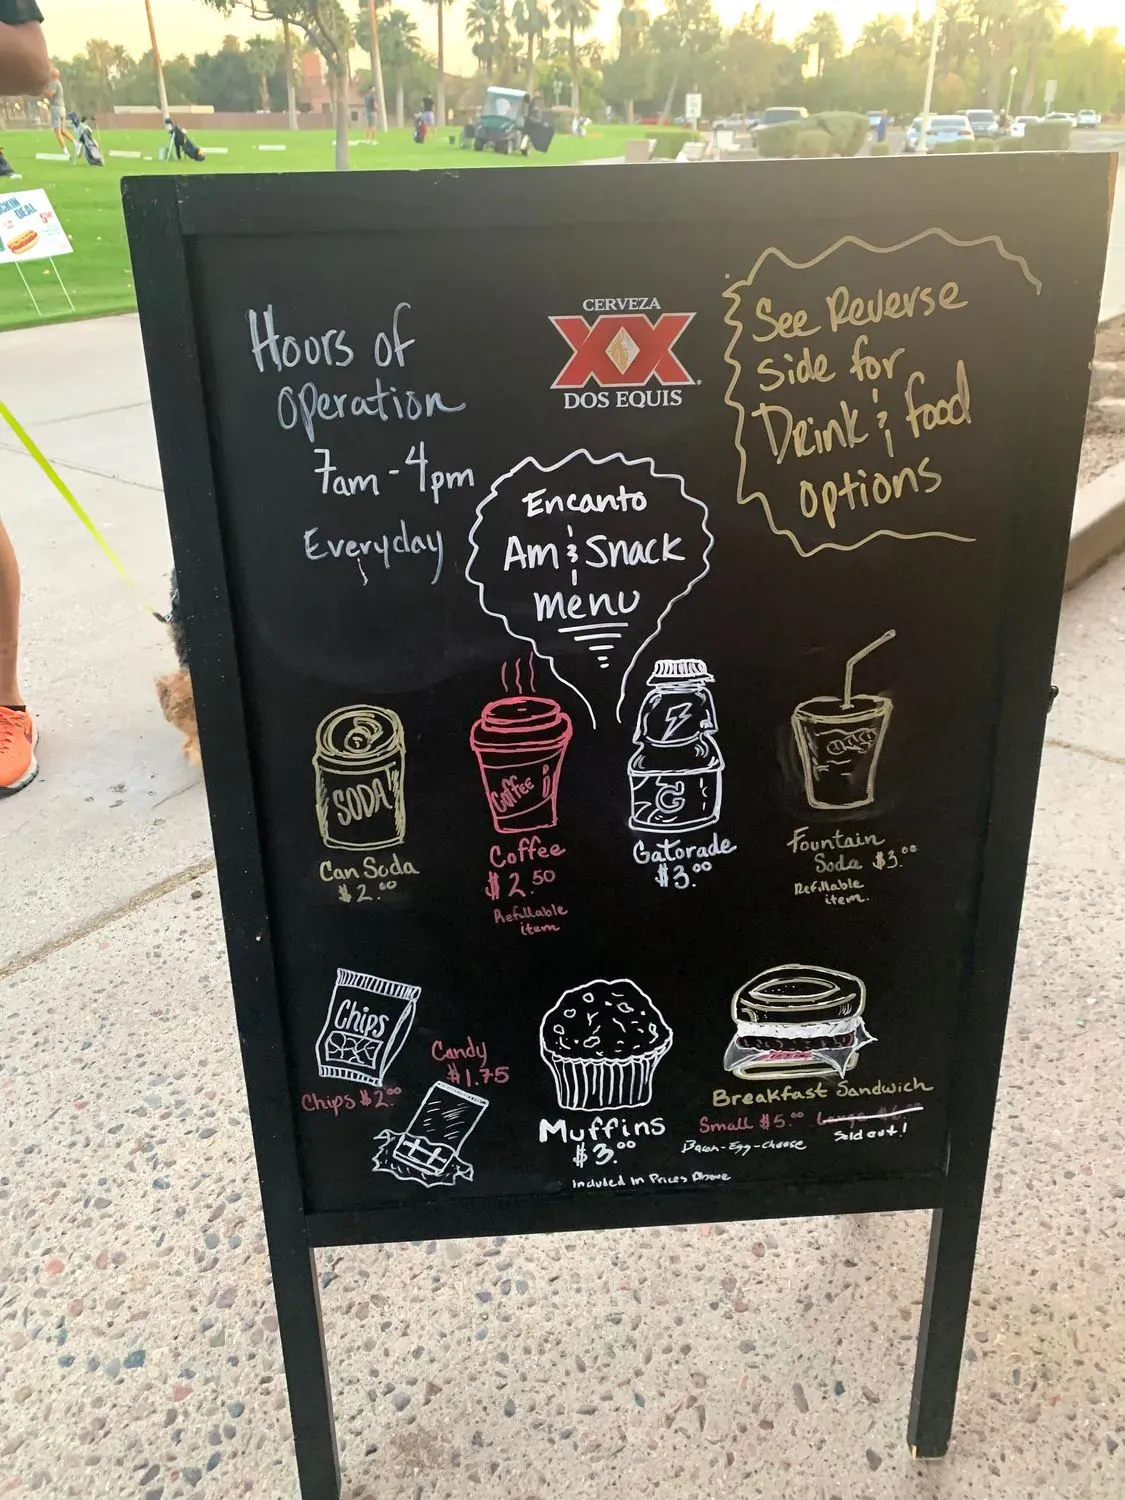 Hours of
Operation
7am-4pm
Everyday
CERVEZA
XX
DOS EQUIS
See Reverse
side for
Drink & food
options
Encanto
Am & Snack
menu
SODA
Can Soda
$2.00
Coffee
Coffee
$2.50
Refillable
item
G
Gatorade
$3.00
Fountain
Soda $3.00
Refillable
item.
Chips
Chips $2.00
Candy
$1.75
Muffins
$3.00
Breakfast Sandwich
Small $5.00 Large $6.00
Sold out!
Bacon-Egg-Cheese
included in Prices Above
DEAL